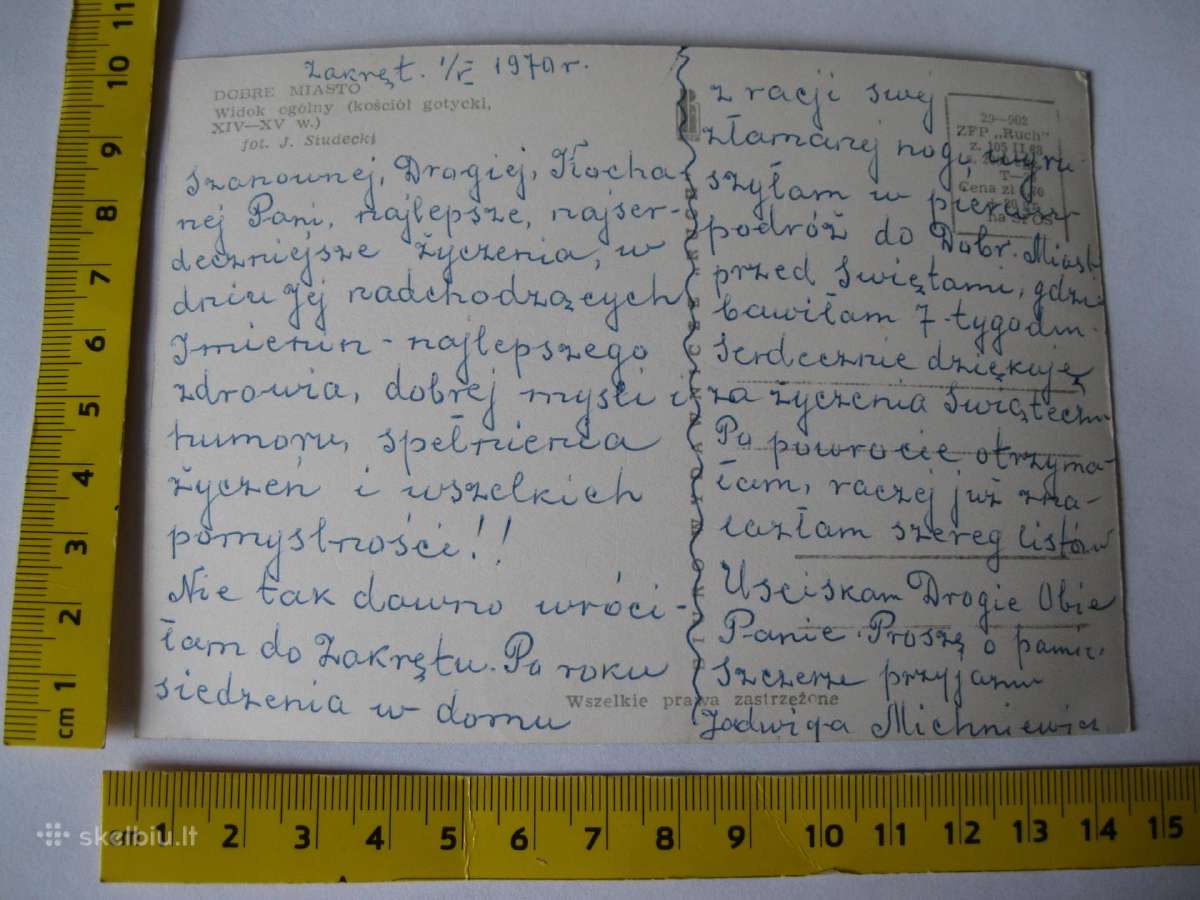 Zakręt. 1/V 1970 r.
DOBRE MIASTO
Widok ogólny (kościół gotycki,
XIV—XV w.)
fot. J. Siudecki
Szanownej, Drogiej, Kocha-
nej Pani, najlepsze, najser-
deczniejsze życzenia, w
dniu Jej nadchodzących
Imienin - najlepszego
zdrowia, dobrej myśli i
humoru, spełnienia
życzeń i wszelkich
pomyślności!!
Nie tak dawno wróci-
łam do Zakrętu. Po roku
siedzenia w domu
z racji swej
złamanej nogi, wyru-
szyłam w pierwszą
podróż do Dobr. Miast
przed Świętami, gdzie
bawiłam 7 tygodni.
Serdecznie dziękuję
za życzenia Świąteczn
Po powrocie otrzyma-
łam, raczej już zna-
lazłam szereg listów
Usciskam Drogie Obie
Panie. Proszę o pamięć
Szczerze przyjazna
Jadwiga Michniewicz
29—902
ZFP „Ruch"
z. 105 II 68
T—
Cena zł
na SFOS
Wszelkie prawa zastrzeżone
11
10
9
8
7
6
5
4
3
2
1
cm
cm 1 2 3 4 5 6 7 8 9 10 11 12 13 14 15
skelbiu.lt